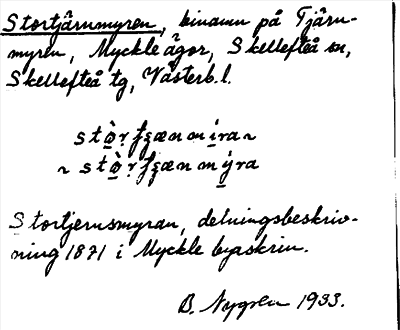 Stortjärnmyren, binamn på Tjärn-
myren, Myckle ägor, Skellefteå sn,
Skellefteå tg, Västerb. l.
Stortjernsmyran, delningsbeskriv-
ning 1871 i Myckle byaskrin.
B. Nygren 1933.